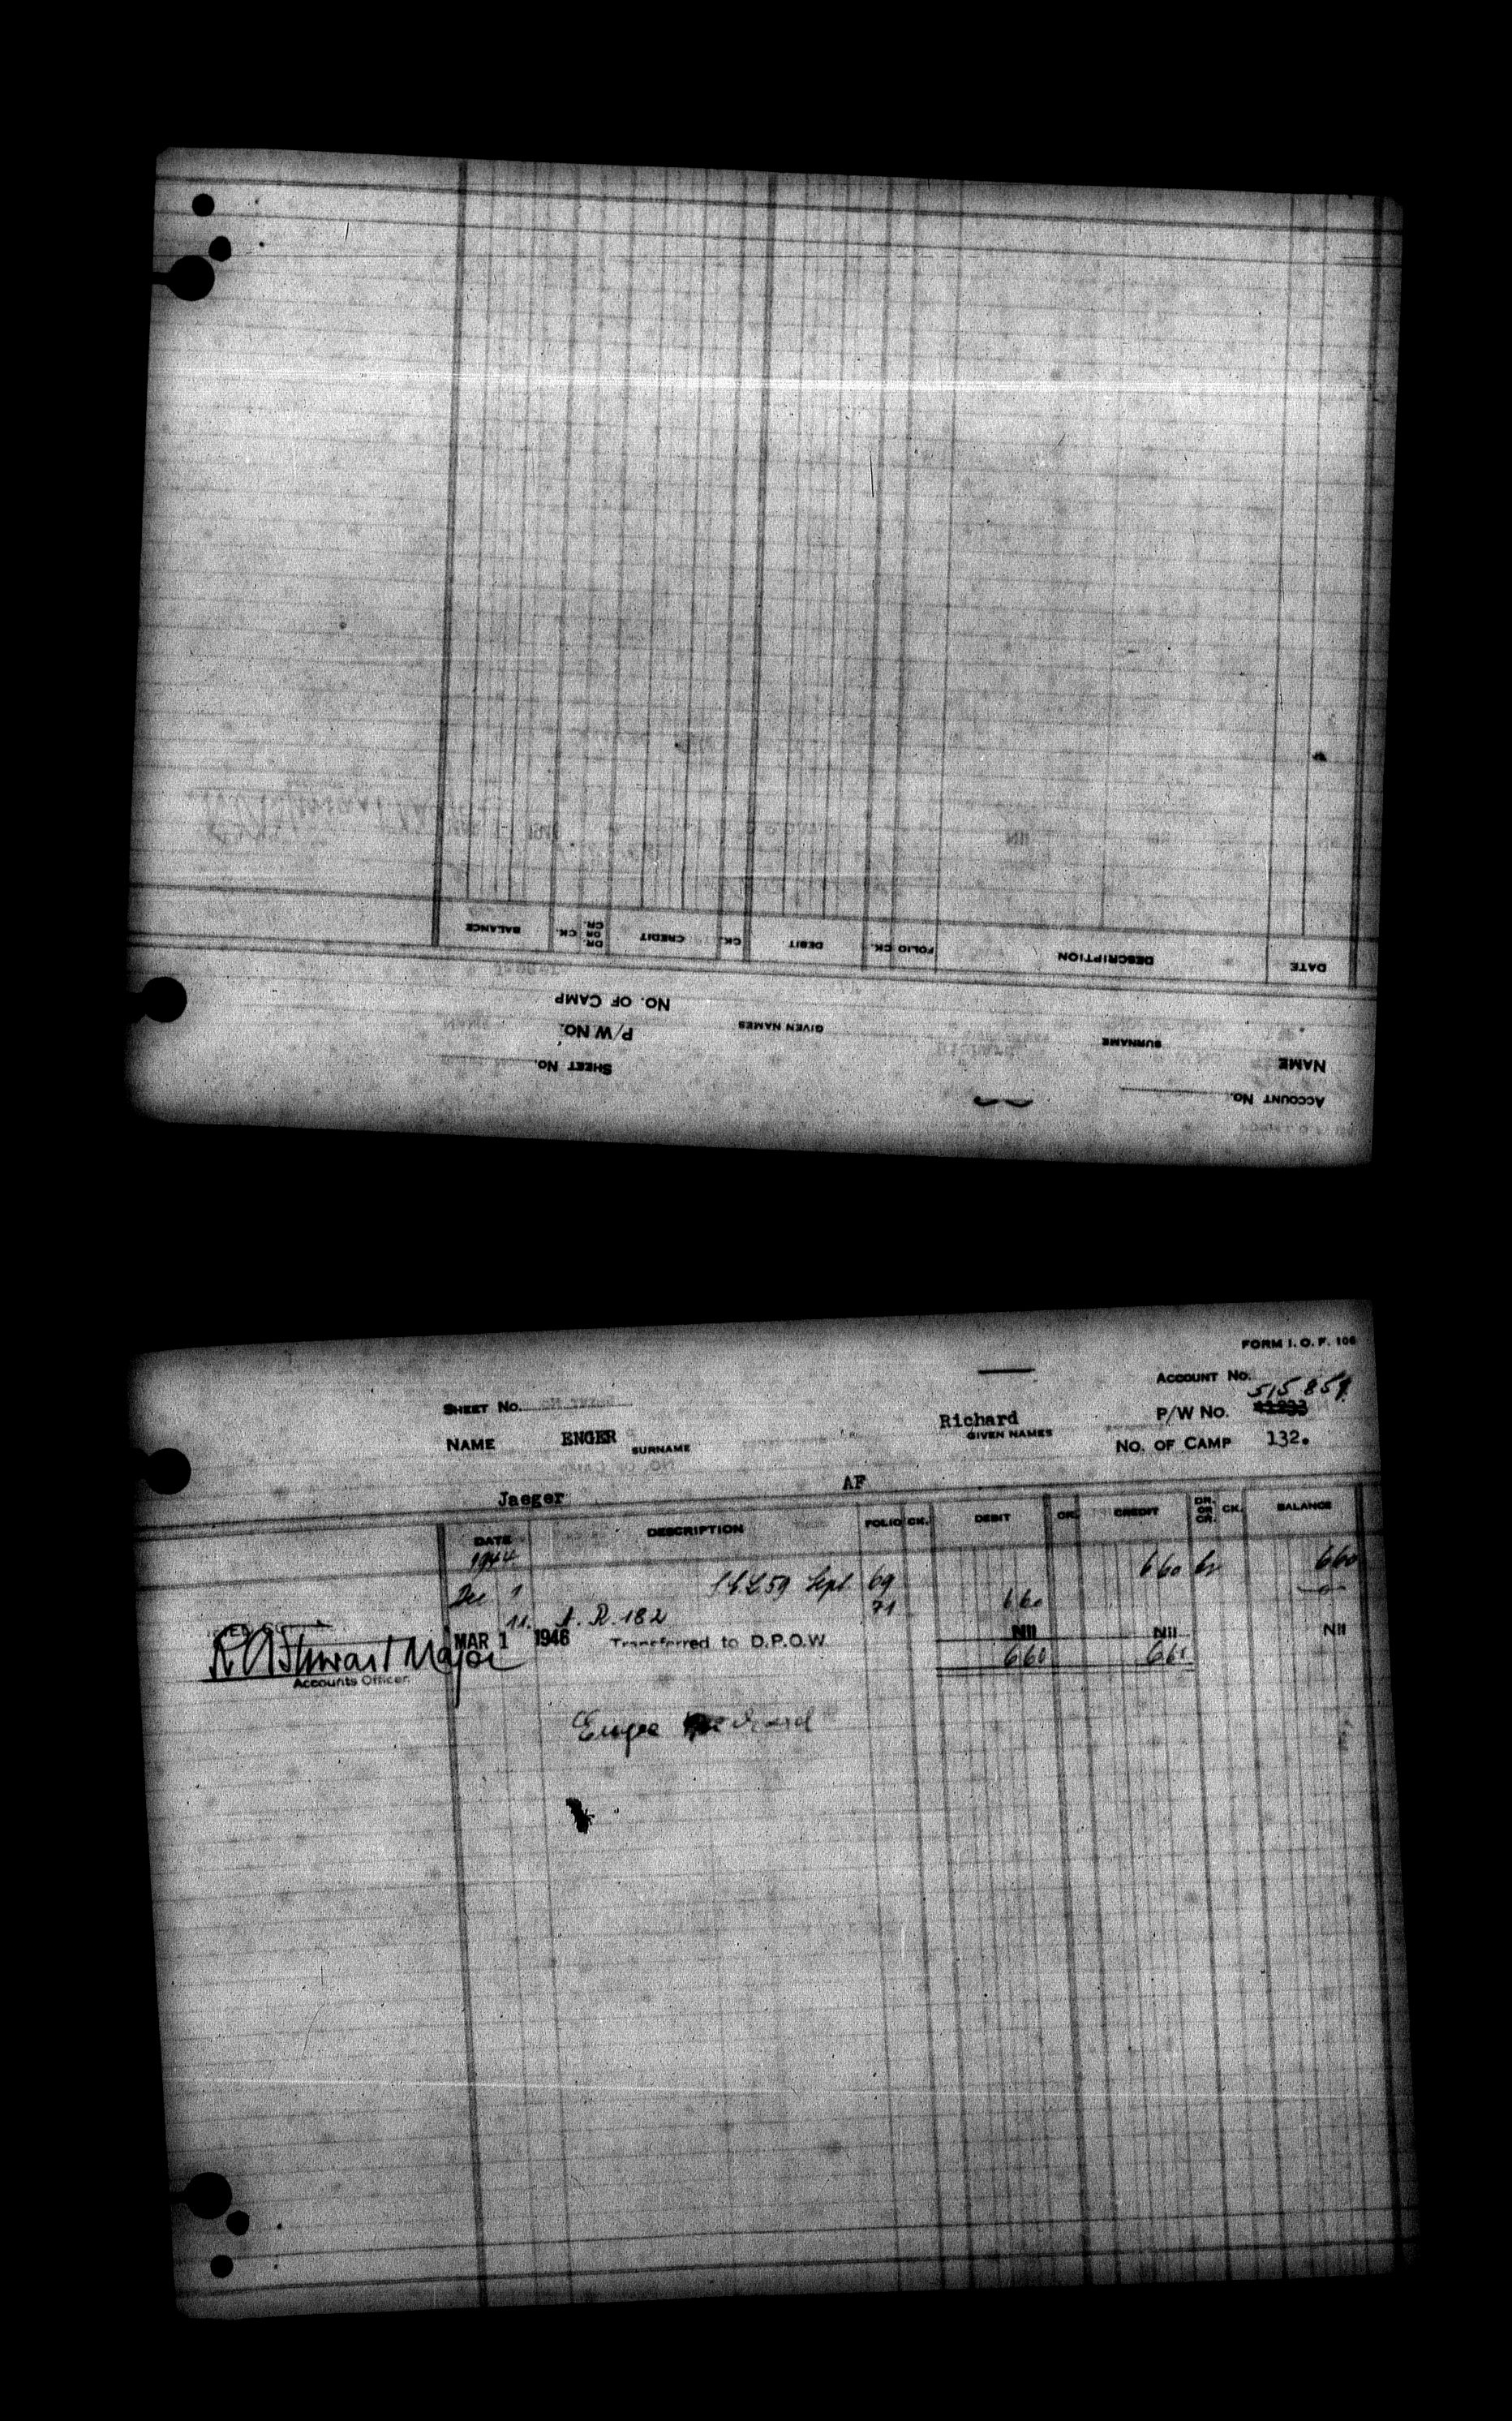 BALANCE CK. DR. OR CR. CREDIT CK. DEBIT FOLIO CK. DESCRIPTION DATE
NO. OF CAMP
P/W NO.
GIVEN NAMES
SURNAME
SHEET NO.
NAME
ACCOUNT NO.
FORM I. O. F. 106
ACCOUNT NO.
515859
SHEET NO.
P/W NO.
NAME ENGER SURNAME
Richard GIVEN NAMES
NO. OF CAMP 132.
Jaeger AF
DATE DESCRIPTION FOLIO CK. DEBIT CR. CREDIT DR. OR CR. CK. BALANCE
1944
Dec 1 59 Sept 69 660 Cr 660
11. A. R. 182 71 660
MAR 1 1946 Transferred to D.P.O.W. Nil Nil Nil
660 660
Major
Accounts Officer.
Richard